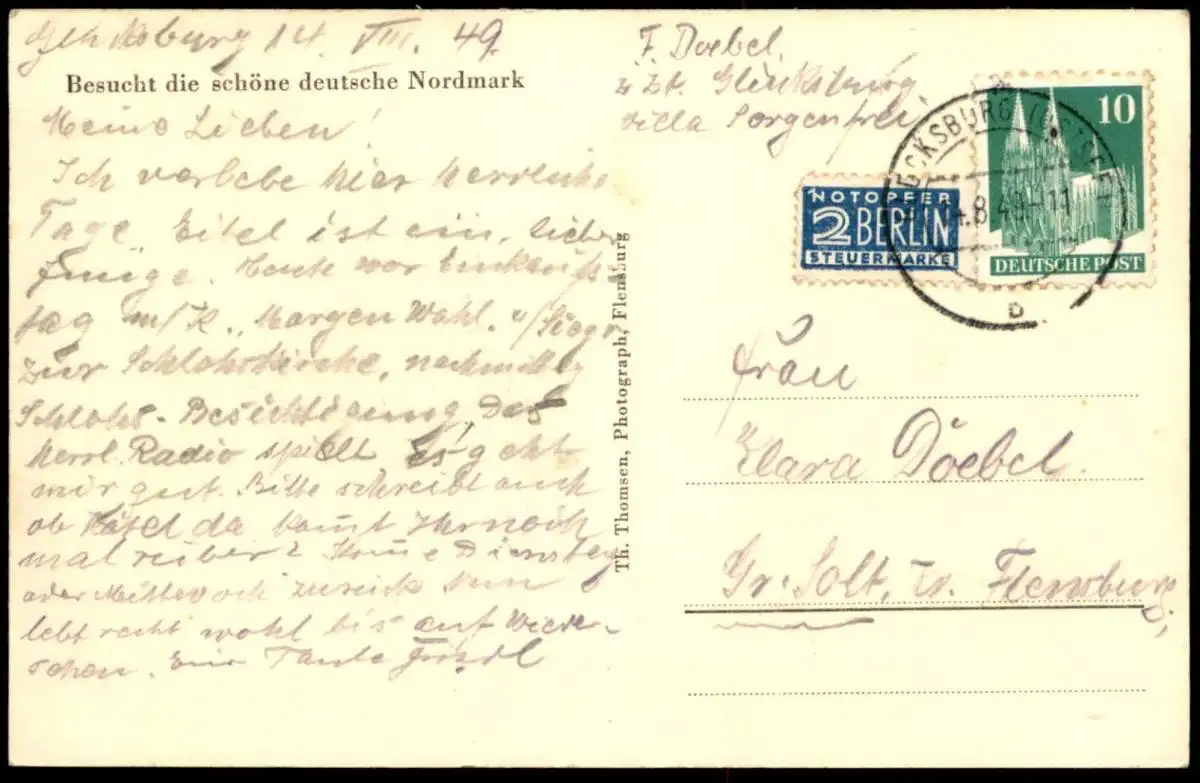 Glücksburg 14. VIII. 49.
Besucht die schöne deutsche Nordmark
Meine Lieben!
Ich verlebe hier herrliche
Tage. Eitel ist ein lieber
Junge. Heute war Einkaufs
tag m/K. Morgen Wahl.
zur Schloßkirche, nachmittag
Schloß-Besichtigung. Das
Herrl. Radio spielt. Es geht
mir gut. Bitte schreibt auch
ob da komt Ihr noch
mal rüber? Kome Dienstag
oder Mittwoch zurück. Nun
lebt recht wohl bis auf Wieder-
sehen. Eure Tante
Th. Thomsen, Photograph, Flensburg
F. Doebel,
z. Zt. Glücksburg
Villa Sorgenfrei,
NOTOPFER
2 BERLIN
STEUERMARKE
10
DEUTSCHE POST
ÜCKSBURG (OSTSEE)
14.8.49-11
D
Frau
Klara Döebel.
Gr. Solt, Kr. Flensburg,